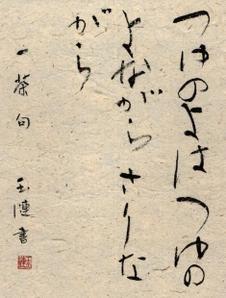 つゆのよはつゆの
よながらさりな
がら
一茶句
玉蓮書